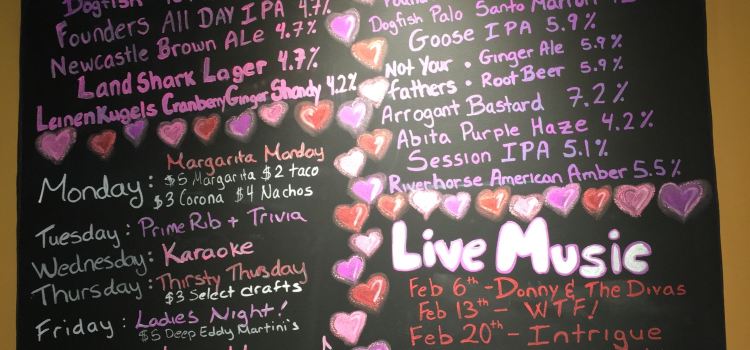 Dogfish
Founders All Day IPA 4.7%
Newcastle Brown Ale 4.7%
Land Shark Lager 4.7%
Leinenkugels Cranberry Ginger Shandy 4.2%
Dogfish Palo Santo
Goose IPA 5.9%
Not Your Fathers • Ginger Ale 5.9%
• Root Beer 5.9%
Arrogant Bastard 7.2%
Abita Purple Haze 4.2%
Session IPA 5.1%
Riverhorse American Amber 5.5%
Monday: Margarita Monday
$5 Margarita $2 taco
$3 Corona $4 Nachos
Tuesday: Prime Rib + Trivia
Wednesday: Karaoke
Thursday: Thirsty Thursday
$3 Select drafts
Friday: Ladies Night!
$5 Deep Eddy Martini's
Live Music
Feb 6th - Donny & The Divas
Feb 13th - WTF!
Feb 20th - Intrigue